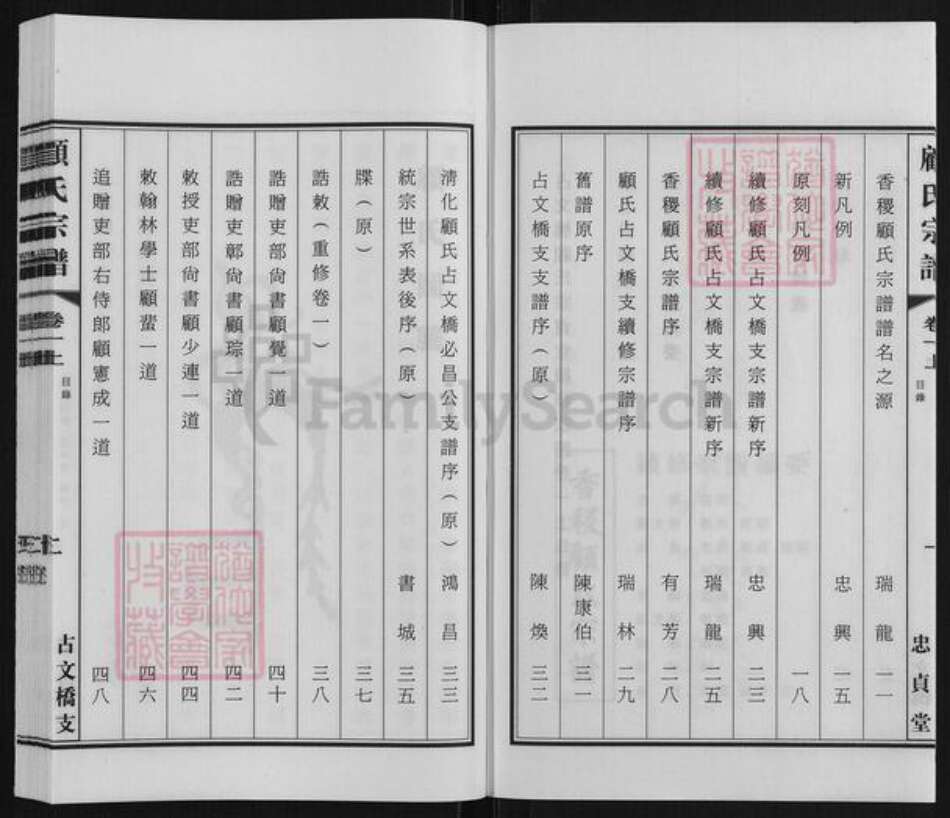 顧氏宗譜
卷一上
目錄
一
忠貞堂
香稷顧氏宗譜譜名之源 瑞龍 一一
新凡例 忠興 一五
原刻凡例 一八
續修顧氏占文橋支宗譜新序 忠興 二三
續修顧氏占文橋支宗譜新序 瑞龍 二五
香稷顧氏宗譜序 有芳 二八
顧氏占文橋支續修宗譜序 瑞林 二九
舊譜原序 陳康伯 三一
占文橋支支譜序（原） 陳煥 三二
清化顧氏占文橋必昌公支譜序（原） 鴻昌 三三
統宗世系表後序（原） 書城 三五
牒（原） 三七
誥敕（重修卷一） 三八
誥贈吏部尙書顧覺一道 四十
誥贈吏部尙書顧琮一道 四二
敕授吏部尙書顧少連一道 四四
敕翰林學士顧蜚一道 四六
追贈吏部右侍郎顧憲成一道 四八
顧氏宗譜
卷一上
目錄
占文橋支
FamilySearch